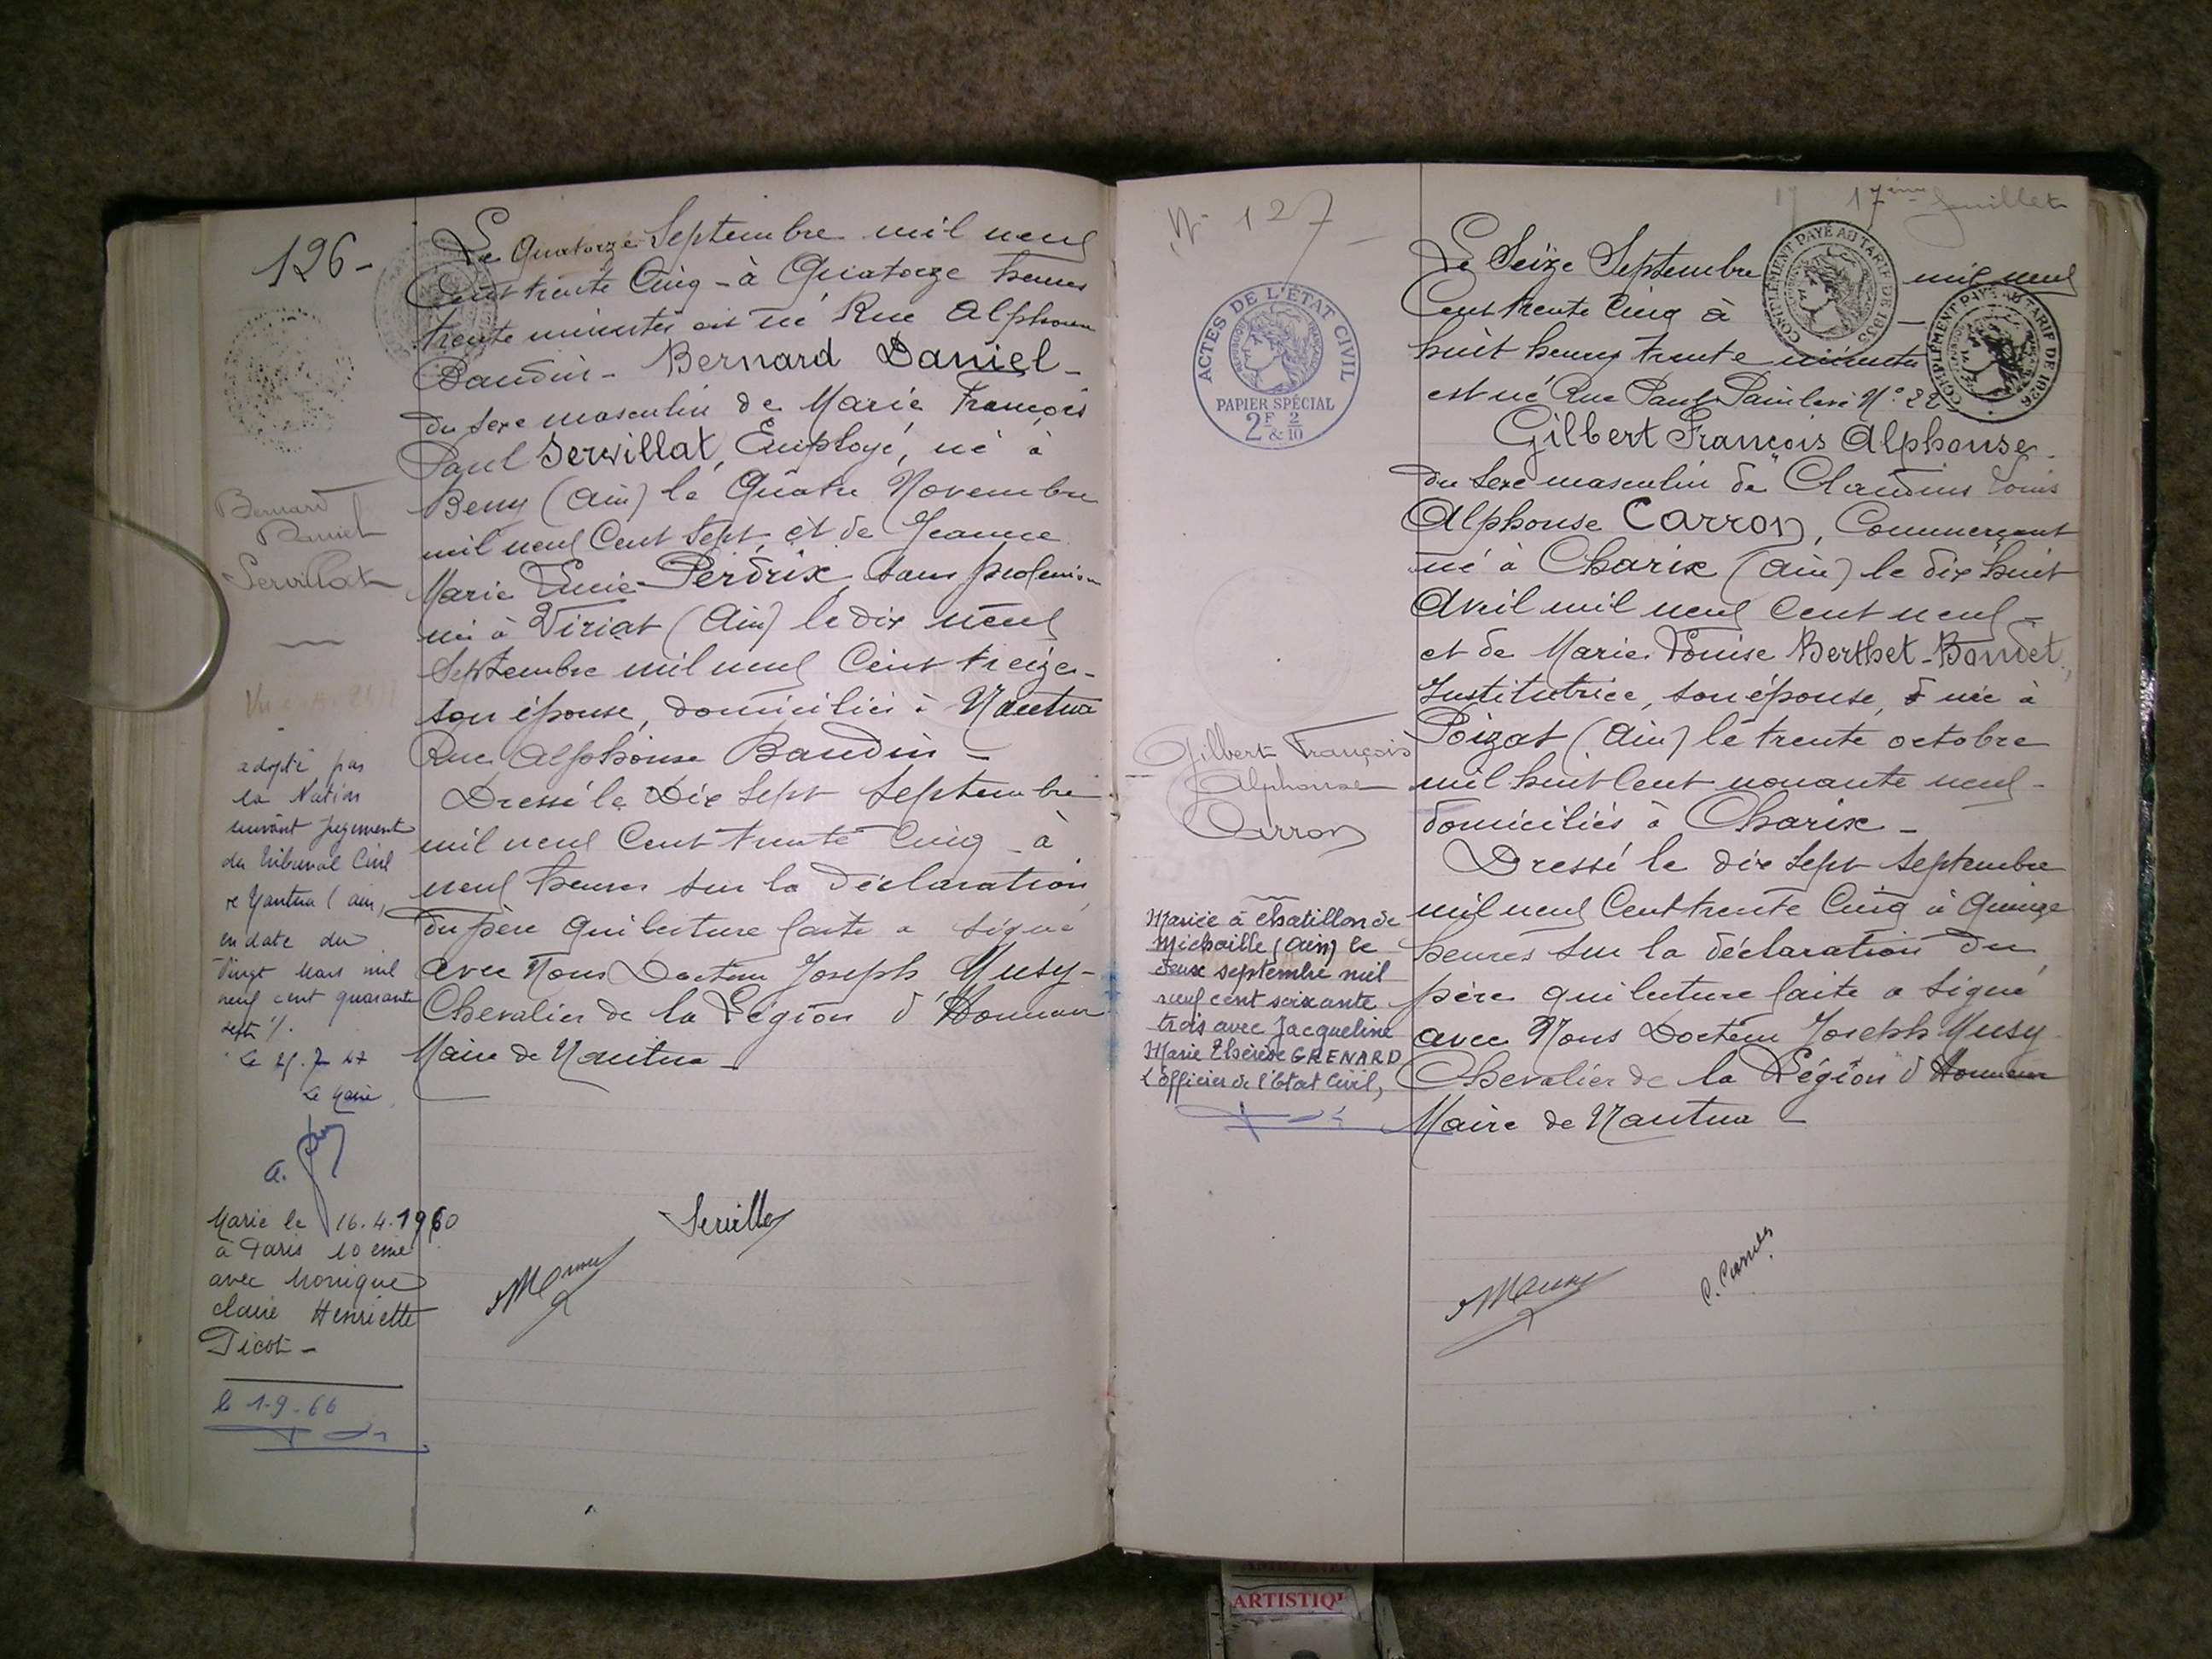 126-
Le Quatorze Septembre mil neuf
Cent trente Cinq - à Quatorze heures
trente minutes est né Rue Alphonse
Baudin - Bernard Daniel -
du sexe masculin de Marie François
Paul Servillat, Employé, né à
Beny (Ain) le Quatre Novembre
mil neuf Cent sept, et de Jeanne
Marie Perdrix, sans profession
née à Viriat (Ain) le dix neuf
Septembre mil neuf Cent treize -
son épouse, domiciliés à Nantua
Rue Alphonse Baudin -
Dressé le Dix Sept Septembre
mil neuf Cent trente Cinq - à
neuf heures sur la déclaration
du père qui lecture faite a signé
avec Nous Docteur Joseph Musy -
Chevalier de la Légion d'Honneur
Maire de Nantua -
Bernard
Daniel
Servillat
adopté par
la Nation
suivant jugement
du tribunal Civil
de Nantua (ain)
en date du
vingt Mars mil
neuf cent quarante
sept ./.
Le Maire
Marié le 16.4.1960
à Paris 10 eme
avec Monique
Claire Henriette
Picot -
le 1-9-66
N° 127
17 17ème feuillet
ACTES DE L'ÉTAT CIVIL
RÉPUBLIQUE FRANÇAISE
PAPIER SPÉCIAL
2F & 2/10
COMPLÉMENT PAYÉ AU TARIF DE 1935
COMPLÉMENT PAYÉ AU TARIF DE 1926
Le Seize Septembre mil neuf
Cent trente Cinq à -
huit heures trente minutes
est né Rue Paul Painlevé N° 22
Gilbert François Alphonse -
du sexe masculin de Claudius Louis
Alphonse Carron, Commerçant
né à Charix (Ain) le dix huit
Avril mil neuf Cent neuf -
et de Marie Louise Berthet-Bondet,
Institutrice, son épouse, née à
Poizat (Ain) le trente octobre
mil huit Cent nonante neuf -
domiciliés à Charix -
Dressé le dix Sept Septembre
mil neuf Cent trente Cinq à Quinze
heures sur la déclaration du
père qui lecture faite a signé
avec Nous Docteur Joseph Musy
Chevalier de la Légion d'Honneur
Maire de Nantua -
Gilbert François
Alphonse
Carron
Marié à Chatillon de
Michaille (Ain) le
deux septembre mil
neuf cent soixante
trois avec Jacqueline
Marie Thérèse GRENARD
L'officier de l'Etat Civil,
ARTISTIQ